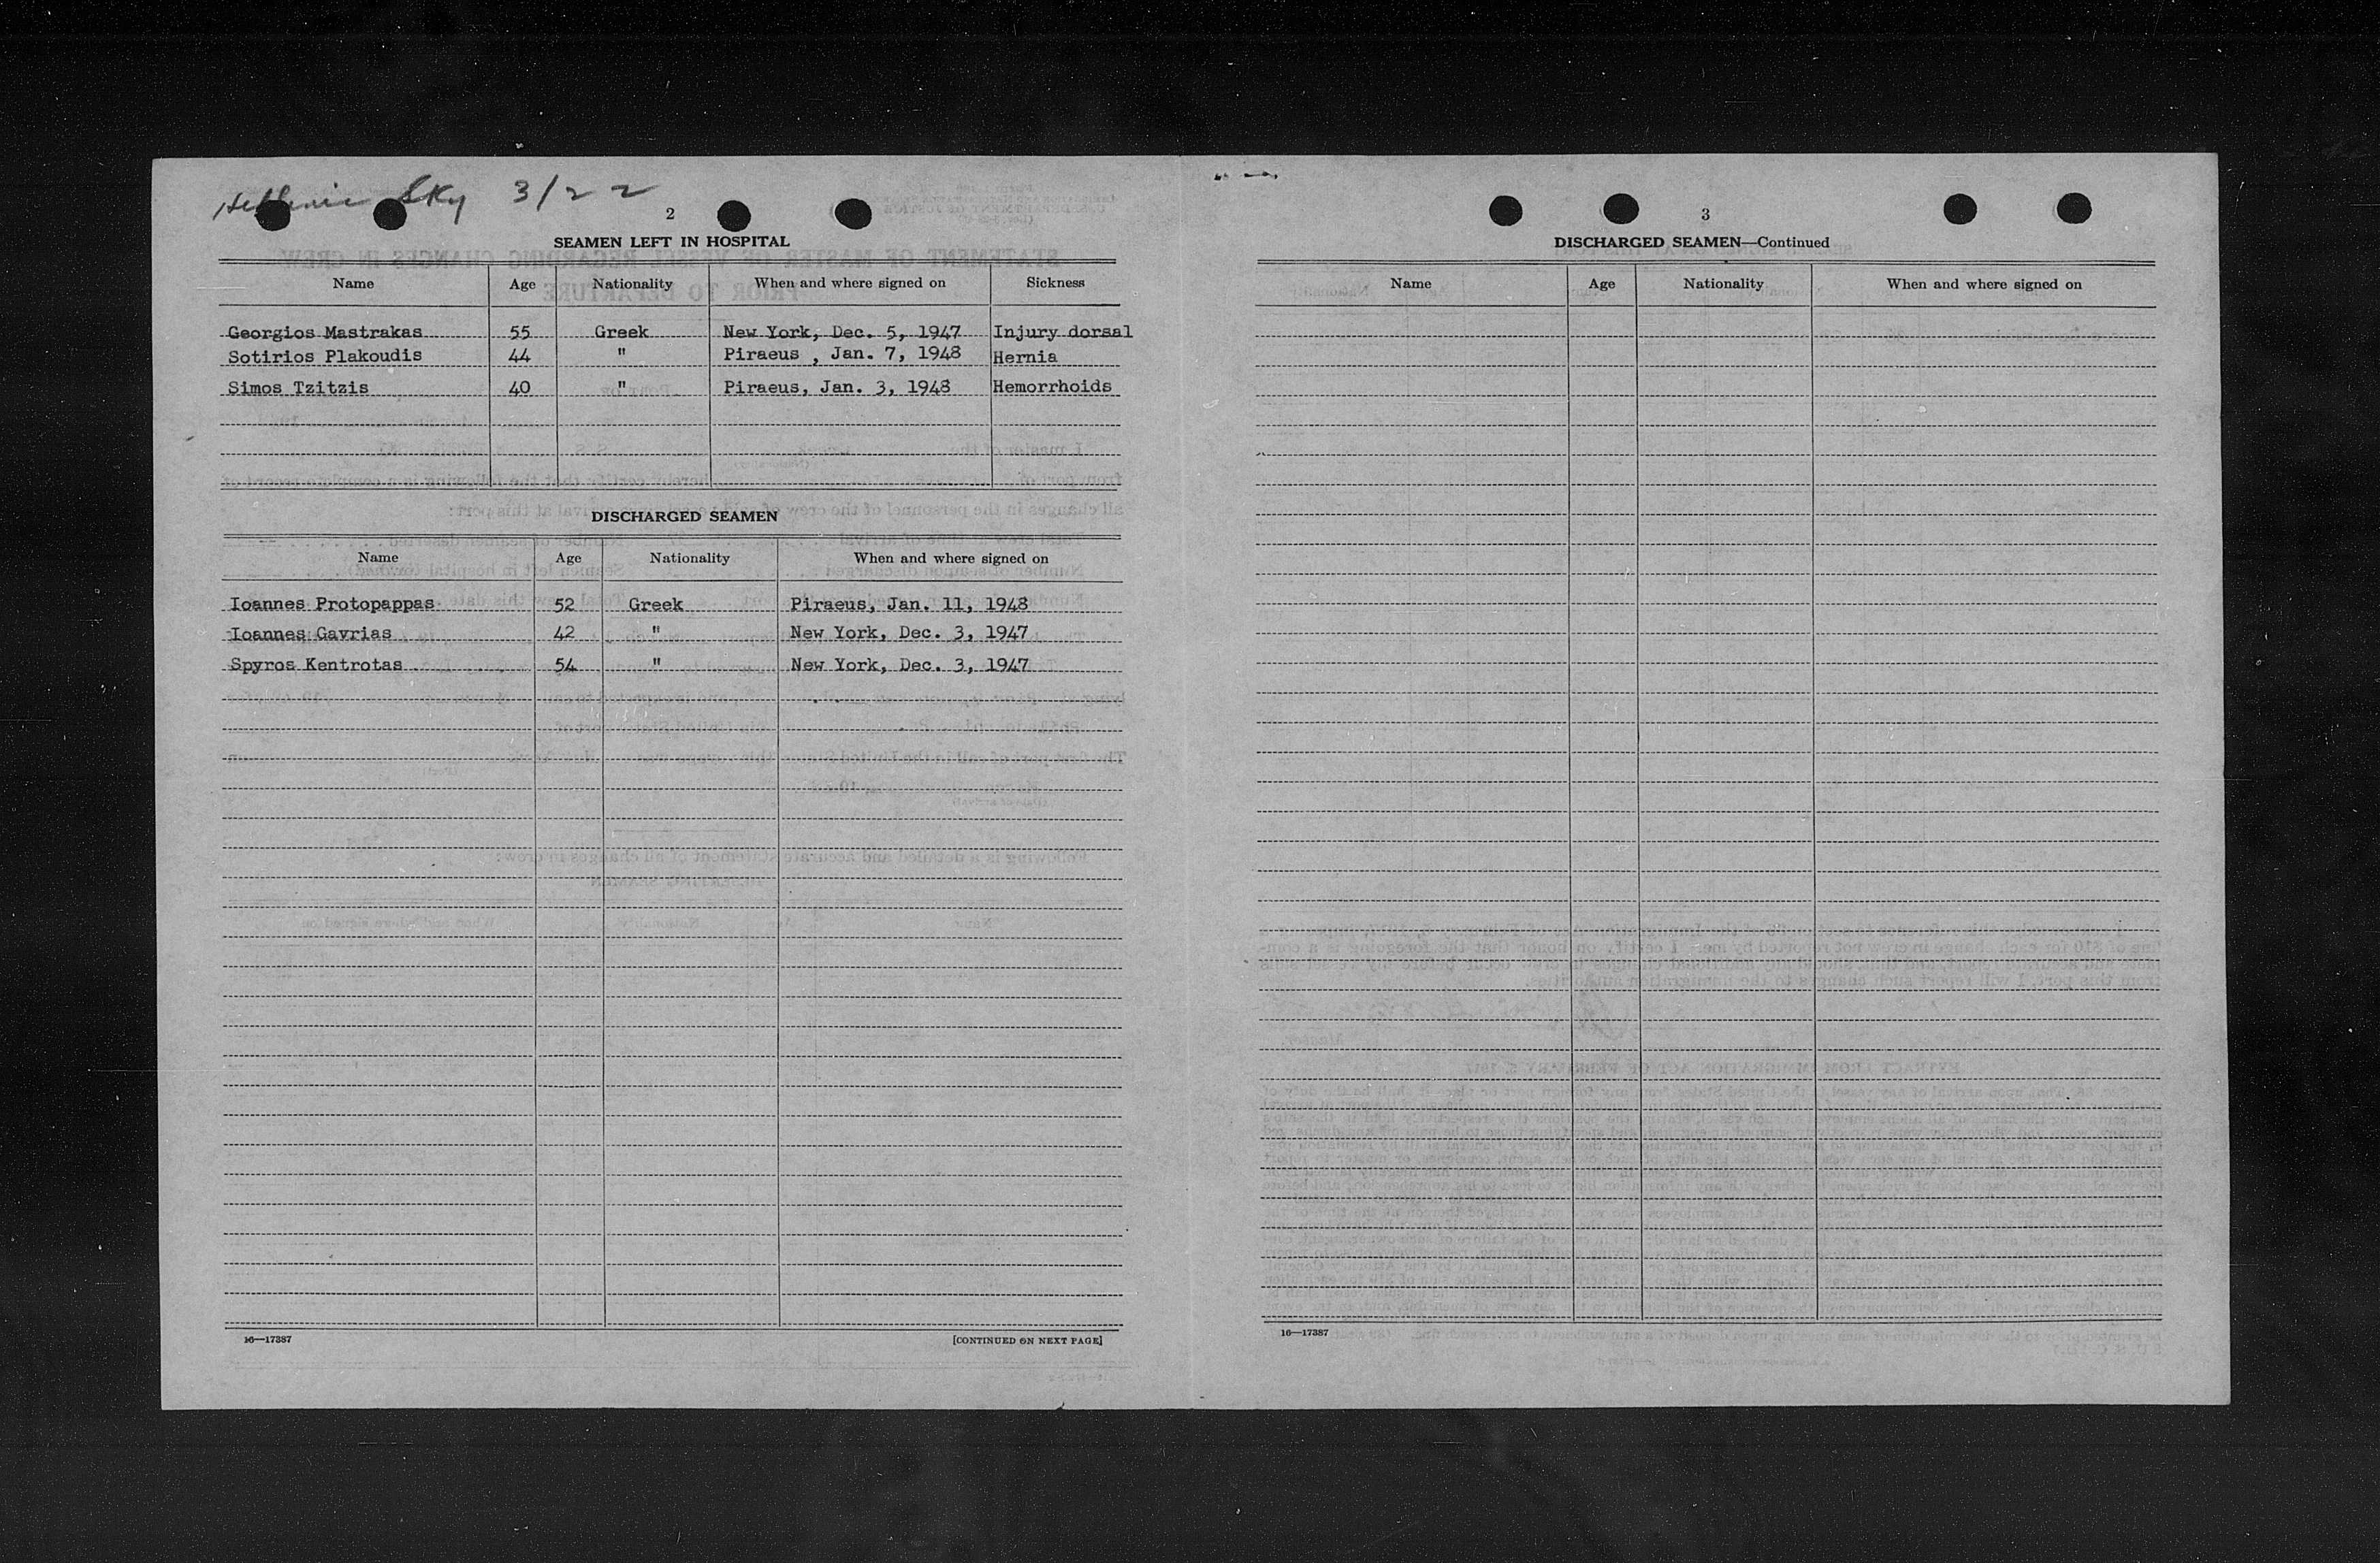 Hellenic Sky 3/22
2
SEAMEN LEFT IN HOSPITAL
Name Age Nationality When and where signed on Sickness
Georgios Mastrakas 55 Greek New York, Dec. 5, 1947 Injury dorsal
Sotirios Plakoudis 44 " Piraeus , Jan. 7, 1948 Hernia
Simos Tzitzis 40 " Piraeus, Jan. 3, 1948 Hemorrhoids
DISCHARGED SEAMEN
Name Age Nationality When and where signed on
Ioannes Protopappas 52 Greek Piraeus, Jan. 11, 1948
Ioannes Gavrias 42 " New York, Dec. 3, 1947
Spyros Kentrotas 54 " New York, Dec. 3, 1947
16—17387 [CONTINUED ON NEXT PAGE]
3
DISCHARGED SEAMEN—Continued
Name Age Nationality When and where signed on
16—17387